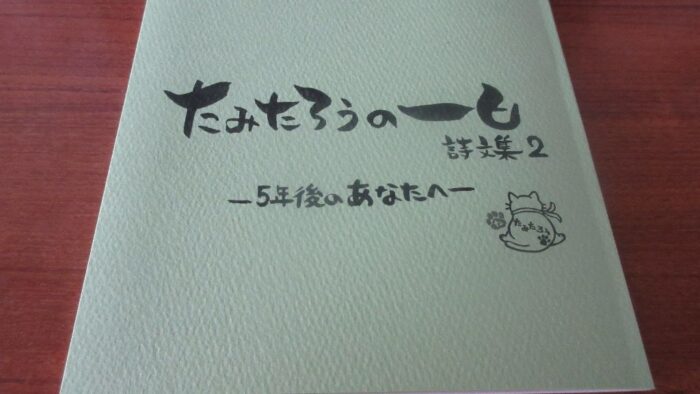 たみたろうの一匕
詩文集2
―5年後のあなたへ―
たみたろう